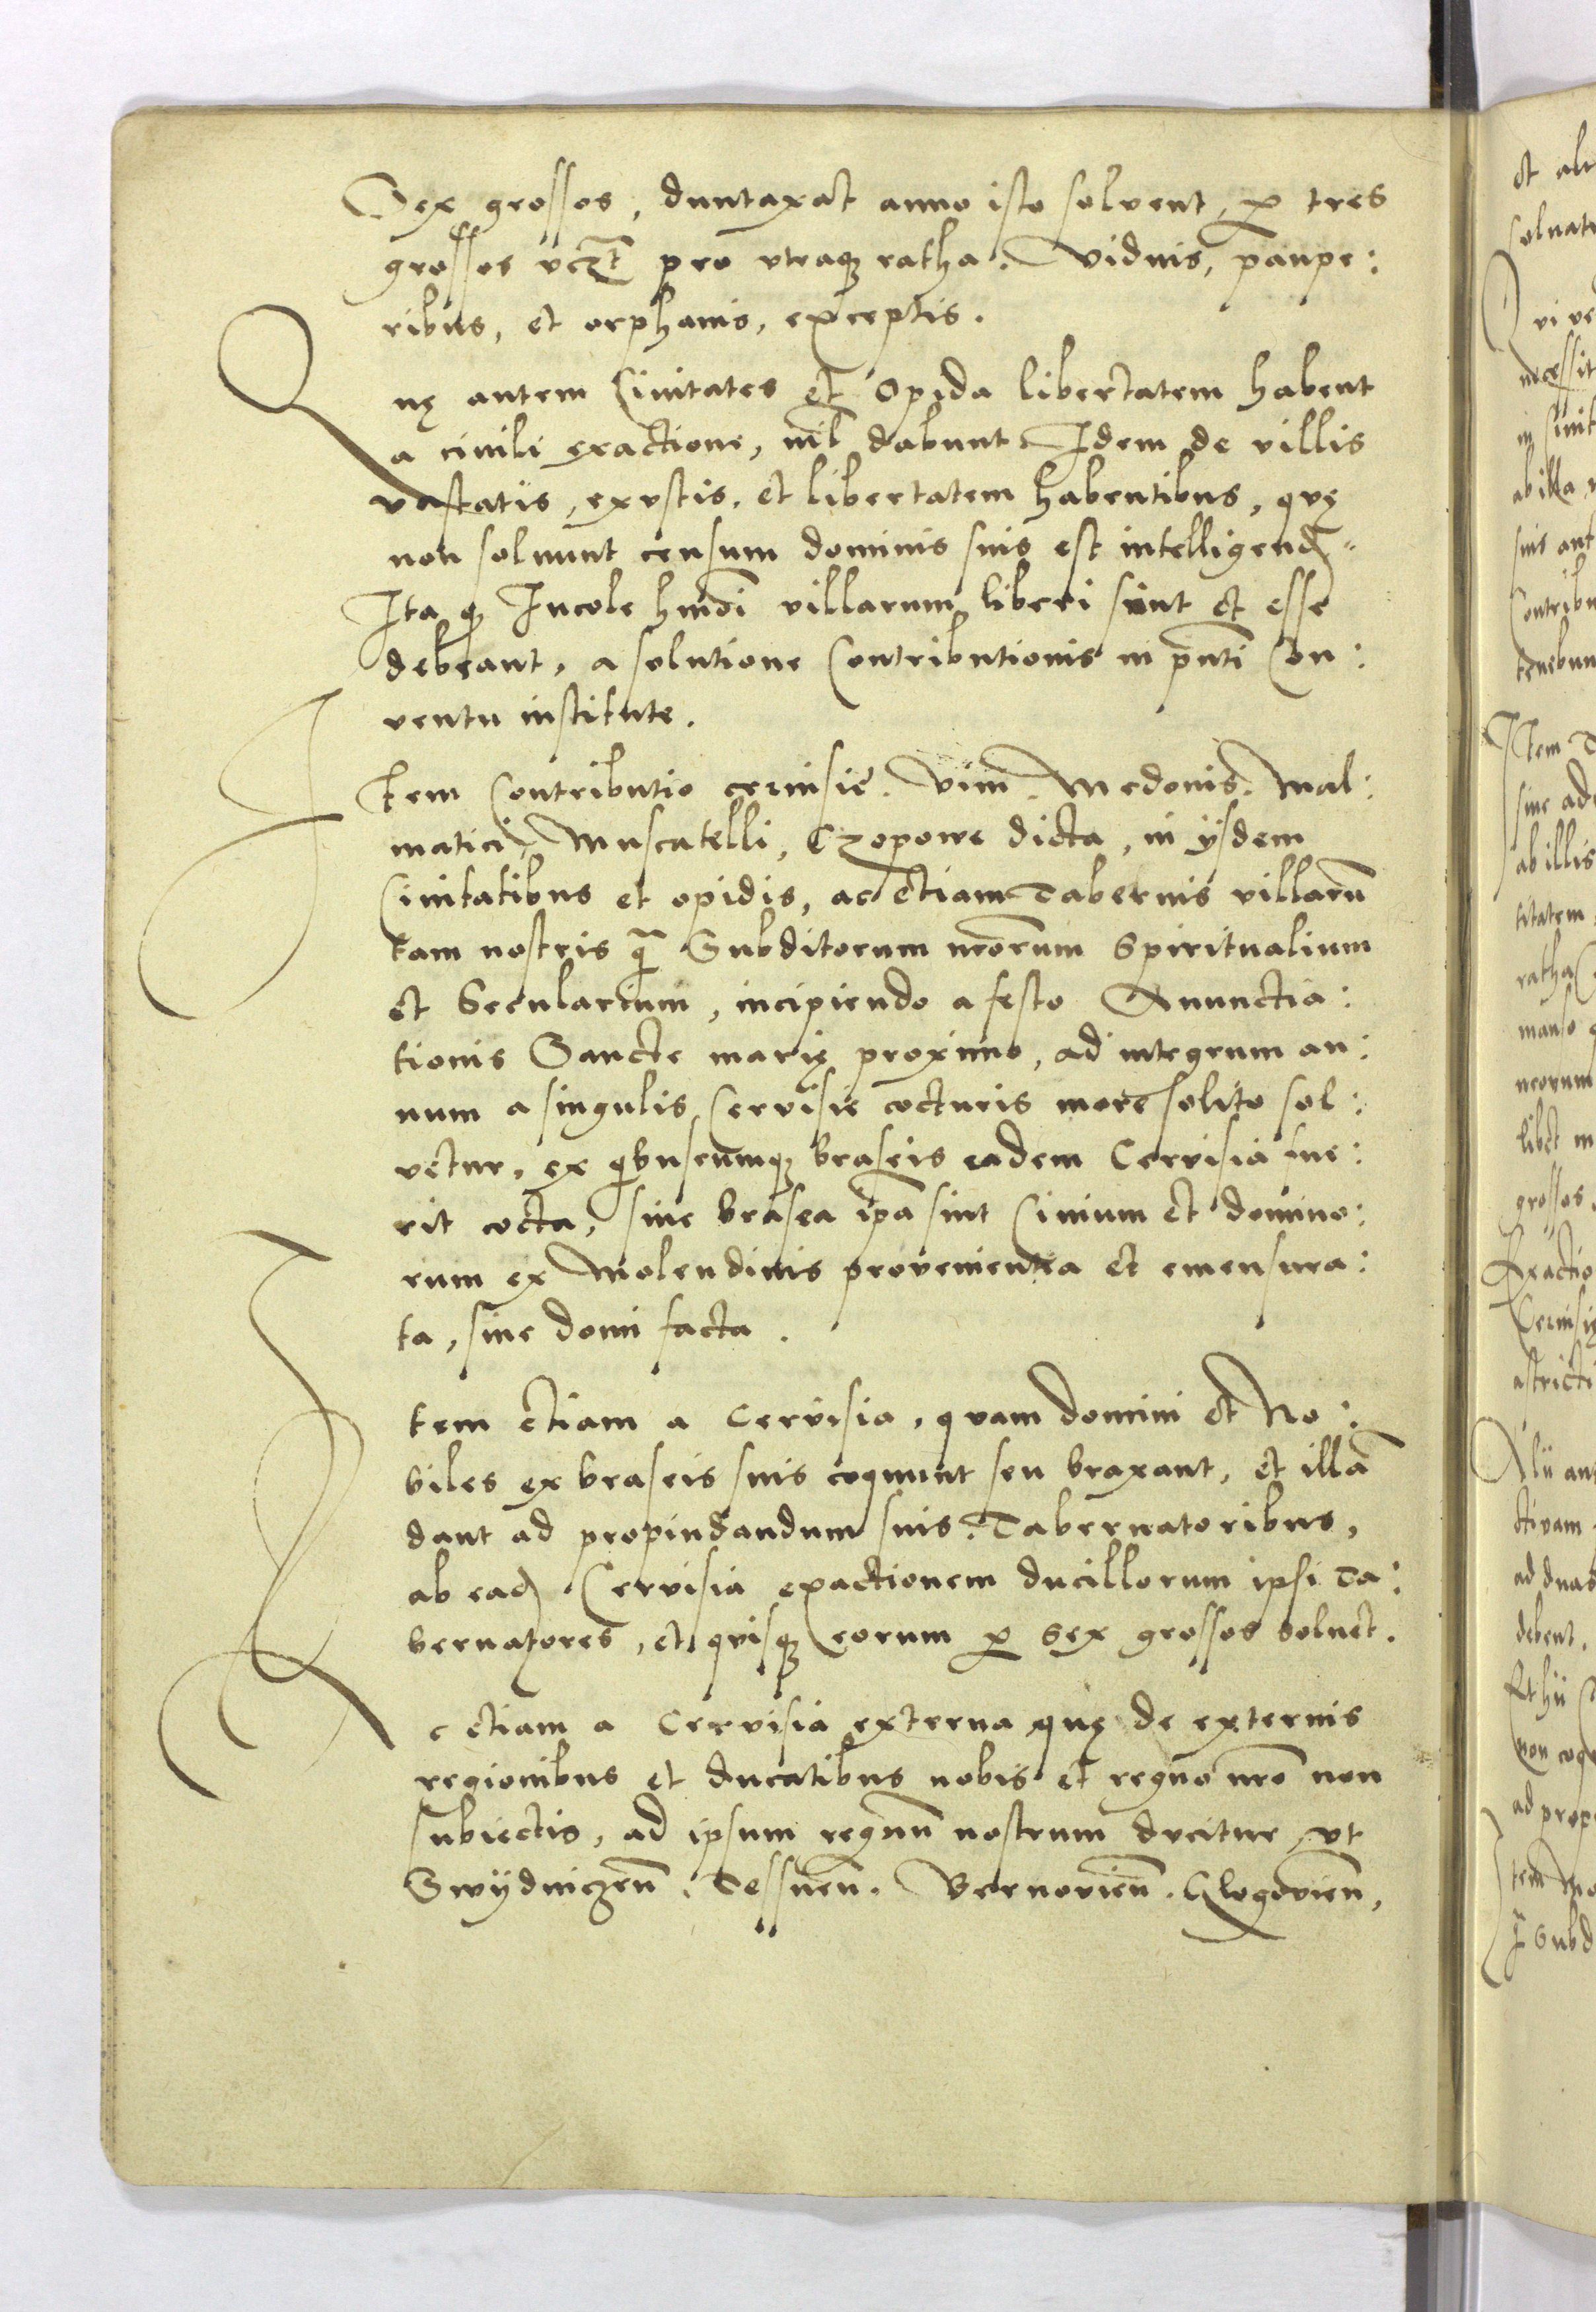 Sex grossos, duntaxat anno isto solvent, p tres
grossos vczt pro vtraq ratha. Viduis, paupe:
ribus, et orphanis, exceptis.
Quę autem Ciuitates et Opida libertatem habent
a ciuili exactione, nil dabunt. Idem de villis
vastatis, exustis, et libertatem habentibus, quę
non soluunt censum dominis suis est intelligend
Ita q Incole hmoi villarum liberi sint et esse
debeant, a solutione Contributionis in pnti Con:
ventu institute.
Item Contributio ceruisie. Vini. Medonis. Mal:
matici, Muscatelli, Czopowe dicta, in ijsdem
Ciuitatibus et opidis, ac etiam Tabernis villarū
tam nostris q̄ Subditorum nrorum Spiritualium
et Secularium, incipiendo a festo Anunctia:
tionis Sancte marię proximo, ad integrum an:
num a singulis Cervisie cocturis more solito sol:
vetur, ex qbuscumq braseis eadem Cervisia fue:
rit cocta, siue brasea ipa sint Ciuium et domino:
rum ex Molendinis provenientia et emensura:
ta, siue domi facta.
Item etiam a Cervisia, quam domini et No:
biles ex braseis suis coquunt seu braxant, et illā
dant ad propinandum suis Tabernatoribus,
ab ead Cervisia exactionem ducillorum ipsi Ta:
bernatores, et quisq eorum p sex grossos soluet.
Ac etiam a Cervisia externa quę de externis
regionibus et ducatibus nobis et regno nro non
subiectis, ad ipsum regnū nostrum ducitur, vt
Swÿdniczeñ. Tessneñ. Bernovieñ. Glogovieñ,
et
solvat
Qui
in
ab illa
suis
Contribu
tenebun
Item
siue
ab illis
titatem
ratha
manso
nrorum
libet
grossos
Exactio
Ceruisię
astricti
Alii
ctivam
ad duas
debent.
Et hii
non coq
ad prop
Item
q̄ Subd